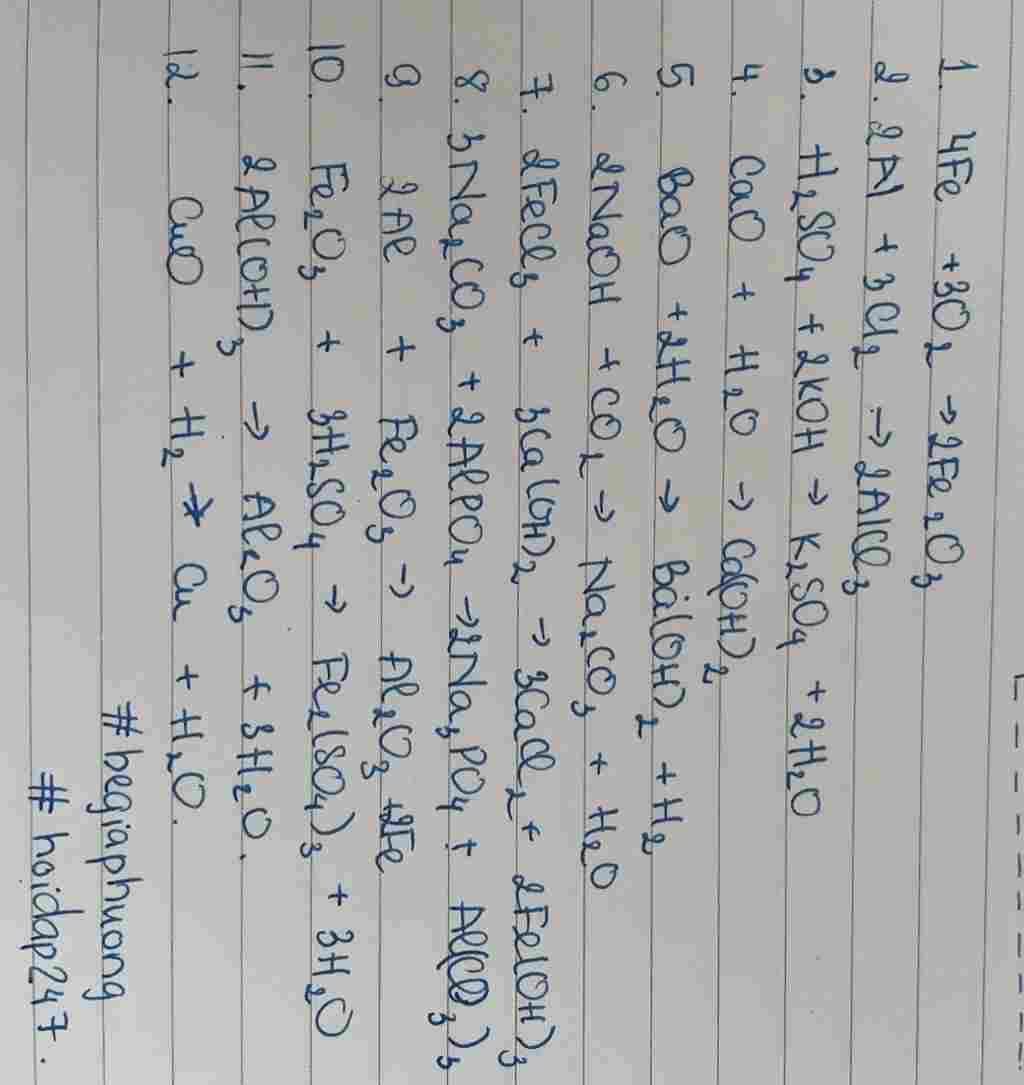 1. 4Fe + 3O₂ → 2Fe₂O₃
2. 2Al + 3Cl₂ → 2AlCl₃
3. H₂SO₄ + 2KOH → K₂SO₄ + 2H₂O
4. CaO + H₂O → Ca(OH)₂
5. BaO + 2H₂O → Ba(OH)₂ + H₂
6. 2NaOH + CO₂ → Na₂CO₃ + H₂O
7. 2FeCl₃ + 3Ca(OH)₂ → 3CaCl₂ + 2Fe(OH)₃
8. 3Na₂CO₃ + 2AlPO₄ → 2Na₃PO₄ + Al(CO₃)₃
9. 2Al + Fe₂O₃ → Al₂O₃ + 2Fe
10. Fe₂O₃ + 3H₂SO₄ → Fe₂(SO₄)₃ + 3H₂O
11. 2Al(OH)₃ → Al₂O₃ + 3H₂O.
12. CuO + H₂ → Cu + H₂O.
#begiaphuong
#hoidap247.